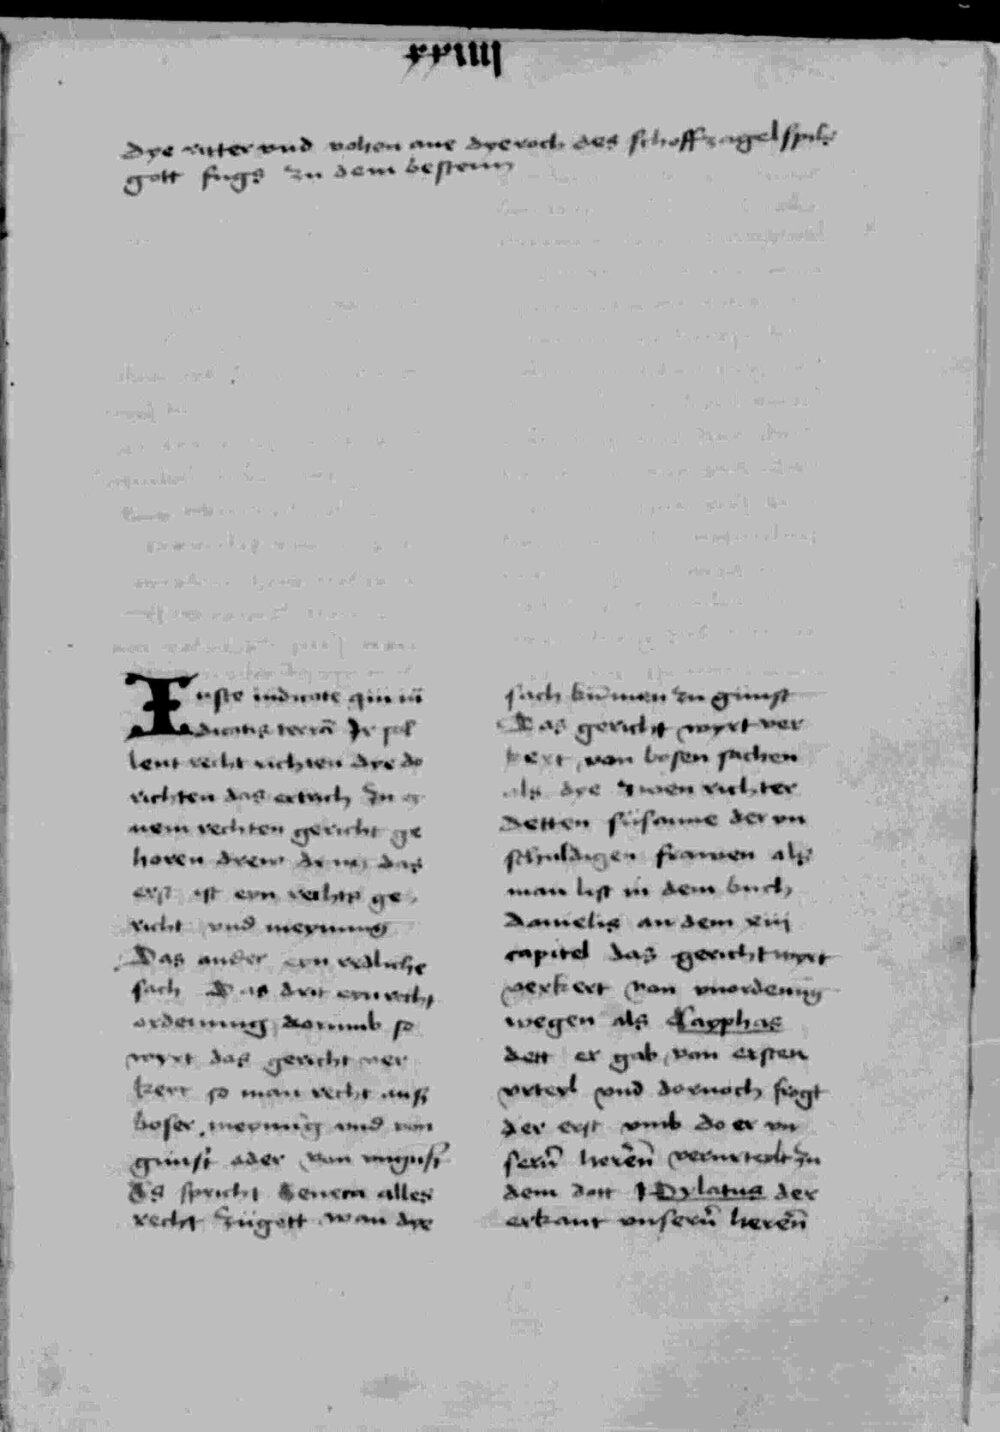 xxiiij
dye ritter vnd vohen ane dye roch des schoffzagel spils
gott fugs zu dem bestenn
Iuste iudicate qui iū
dicatis terrā Ir sol
lent recht richten dye do
richten das ertrich zu ey
nem rechten gericht ge
horen drew das
erst ist eyn rechts ge
richt vnd meynung
Das ander eyn redliche
sach Das drit eyn recht
ordenung dorumb so
wyrt das gericht ver
kert so man recht auß
boser meynūg vnd von
gunst oder von vngunst
Es spricht Seneca alles
recht zugett wan dye
sach kūmen zu gunst
Das gericht wyrt ver
kert von bosen sachen
als dye zwen richter
detten susanne der vn
schuldigen frawen als
man list in dem buch
danielis an dem xiij
capitel das gericht wyrt
verkert von vnordenūg
wegen als Cayphas
dett er gab von ersten
vrteyl vnd dornoch frogt
der erst vmb do er vn
serū herēn verurteylt zu
dem dott Pylatus der
erkant vnserū herēn